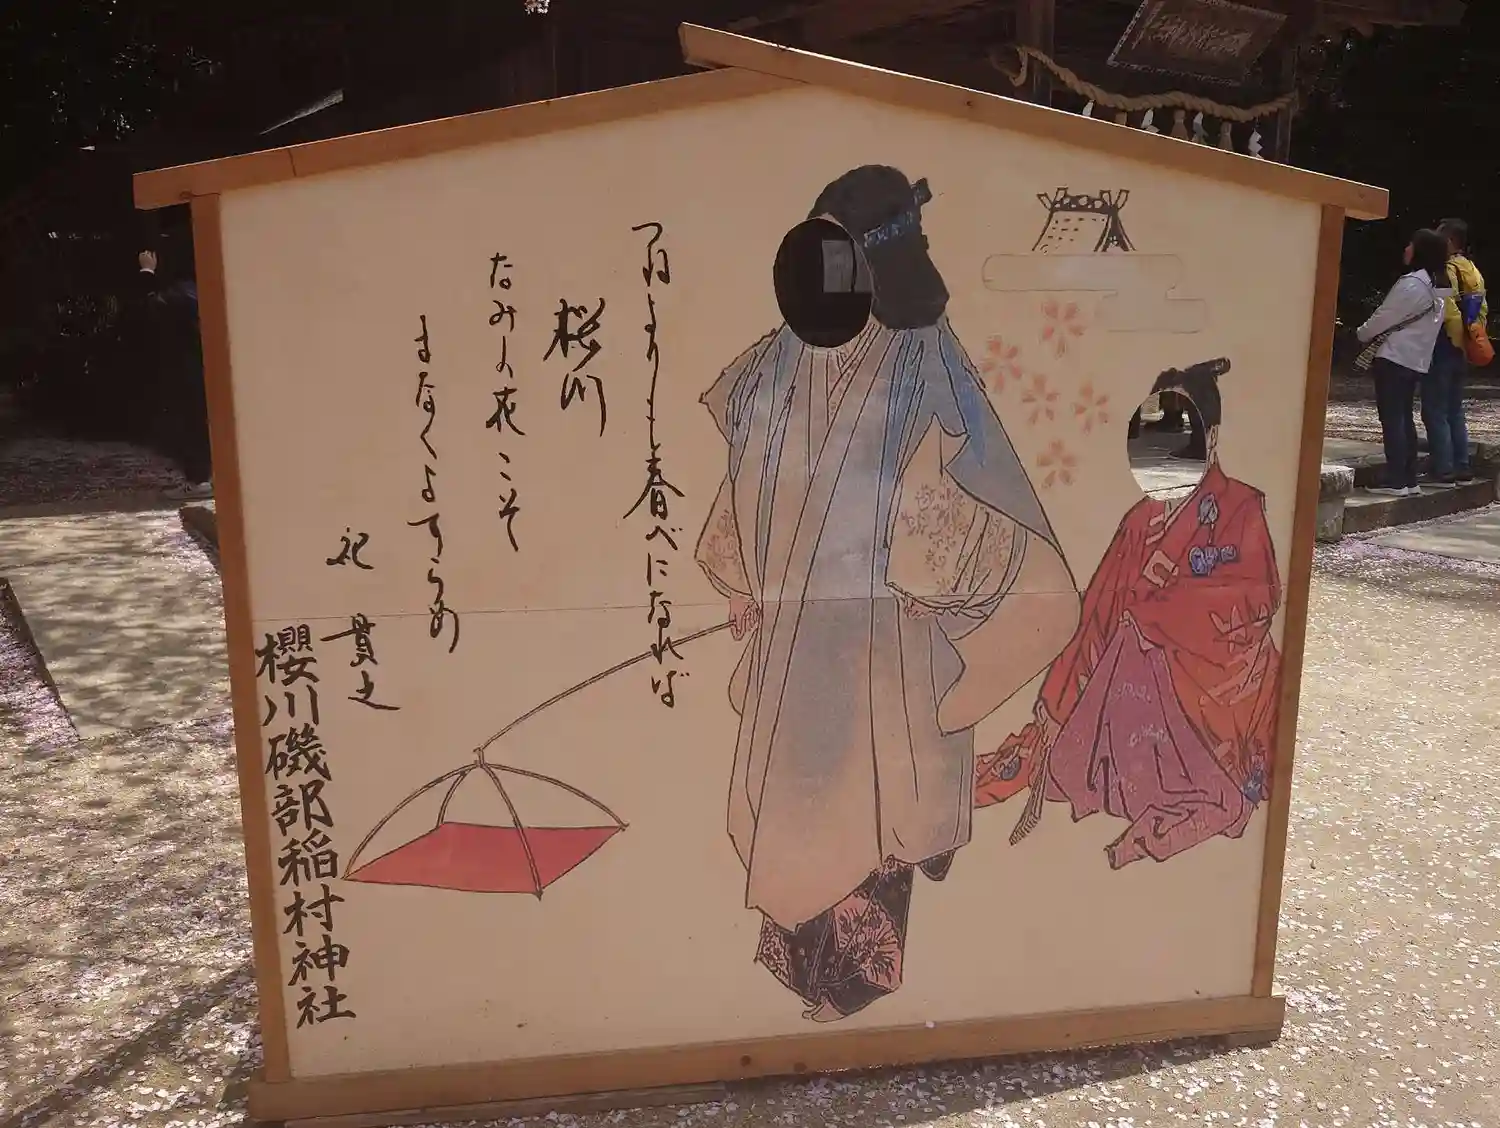 つねよりも春べになれば
桜川
なみの花こそ
まなくよすらめ
紀 貫之
櫻川磯部稲村神社